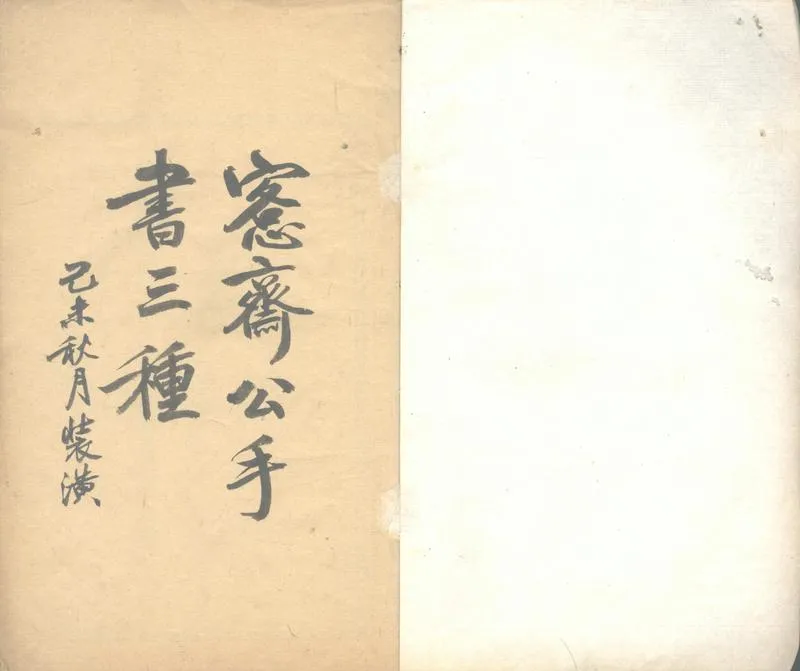 愙齋公手
書三種
己未秋月裝潢